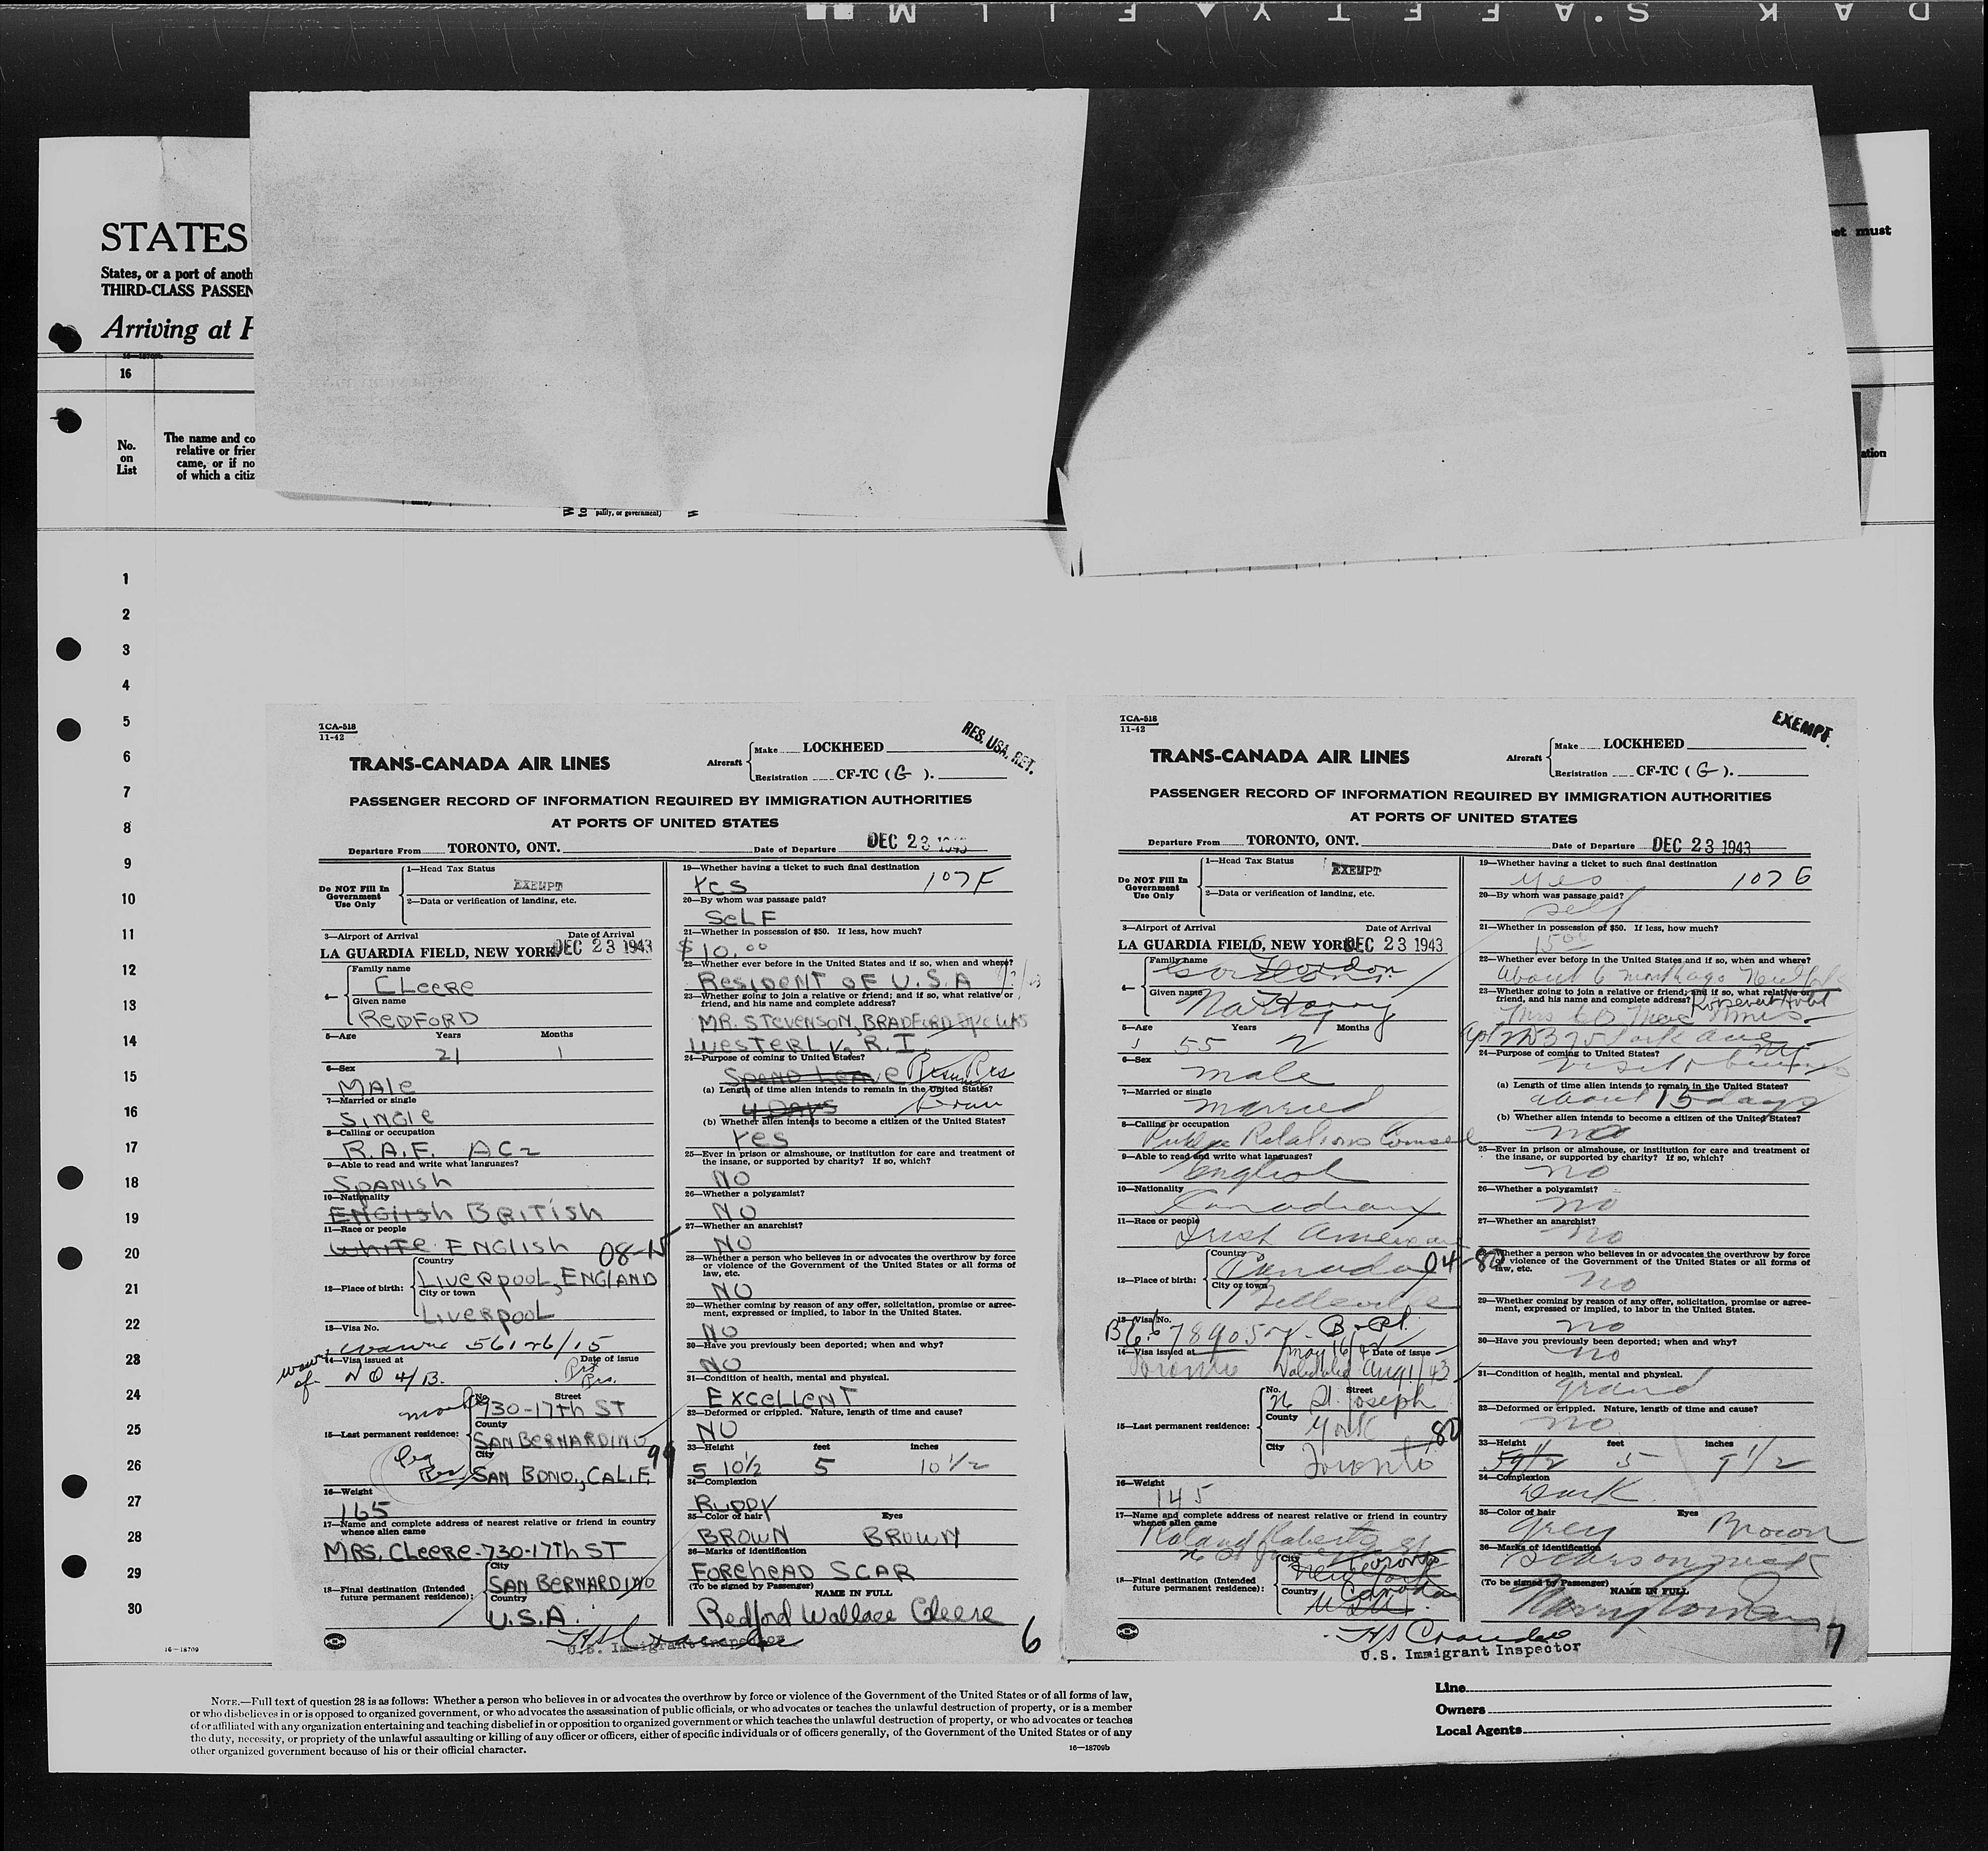 KODAK S.A.F.E.T.Y ▲ F I L M ■■
STATES
States, or a port of anoth
THIRD-CLASS PASSEN
Arriving at
et must
16—18709b
16
No.
on
List
The name and co
relative or frien
came, or if no
of which a citiz
pality, or government)
ation
1
2
3
4
5
6
7
8
9
10
11
12
13
14
15
16
17
18
19
20
21
22
23
24
25
26
27
28
29
30
16—18709
TCA-518
11-42
RES. USA. RET.
TRANS-CANADA AIR LINES
Aircraft
Make LOCKHEED
Registration CF-TC (G).
PASSENGER RECORD OF INFORMATION REQUIRED BY IMMIGRATION AUTHORITIES
AT PORTS OF UNITED STATES
Departure From TORONTO, ONT. Date of Departure DEC 23 1943
Do NOT Fill In
Government
Use Only
1—Head Tax Status
EXEMPT
2—Data or verification of landing, etc.
3—Airport of Arrival Date of Arrival
LA GUARDIA FIELD, NEW YORK DEC 23 1943
4—
Family name
CLeeRe
Given name
ReDFORD
5—Age Years Months
21 1
6—Sex
MALe
7—Married or single
SINGle
8—Calling or occupation
R.A.F. AC2
9—Able to read and write what languages?
SPANISh
10—Nationality
ENGlish BRITISh
11—Race or people
White ENGLISH 08-15
12—Place of birth:
Country
LIVeRpool, ENGlAND
City or town
LIVeRpooL
13—Visa No.
56126/15
14—Visa issued at Date of issue
4/13.
15—Last permanent residence:
No. Street
730-17Th ST
County
SAN BeRNARDINO
City 99
SAN BDNO., CALIF.
16—Weight
165
17—Name and complete address of nearest relative or friend in country
whence alien came
MRS. CLeeRe-730-17Th ST
18—Final destination (Intended
future permanent residence):
City
SAN BeRNARDINO
Country
U.S.A.
U.S. Immigrant Inspector
19—Whether having a ticket to such final destination
Yes 107F
20—By whom was passage paid?
SeLF
21—Whether in possession of $50. If less, how much?
$10.00
22—Whether ever before in the United States and if so, when and where?
ResIDeNT OF U.S.A
23—Whether going to join a relative or friend; and if so, what relative or
friend, and his name and complete address?
MR. STeVeNSON, BRADFORD
WesTeRLY, R.I.
24—Purpose of coming to United States?
SpeND LeAVe
(a) Length of time alien intends to remain in the United States?
4 DAYS
(b) Whether alien intends to become a citizen of the United States?
Yes
25—Ever in prison or almshouse, or institution for care and treatment of
the insane, or supported by charity? If so, which?
NO
26—Whether a polygamist?
NO
27—Whether an anarchist?
NO
28—Whether a person who believes in or advocates the overthrow by force
or violence of the Government of the United States or all forms of
law, etc.
NO
29—Whether coming by reason of any offer, solicitation, promise or agree-
ment, expressed or implied, to labor in the United States.
NO
30—Have you previously been deported; when and why?
NO
31—Condition of health, mental and physical.
EXCeLLeNT
32—Deformed or crippled. Nature, length of time and cause?
NO
33—Height feet inches
5 10½ 5 10 1/2
34—Complexion
RUDDY
35—Color of hair Eyes
BROWN BROWN
36—Marks of identification
FOReheAD SCAR
(To be signed by Passenger) NAME IN FULL
Redford Wallace Cleere
6
TCA-518
11-42
EXEMPT.
TRANS-CANADA AIR LINES
Aircraft
Make LOCKHEED
Registration CF-TC (G).
PASSENGER RECORD OF INFORMATION REQUIRED BY IMMIGRATION AUTHORITIES
AT PORTS OF UNITED STATES
Departure From TORONTO, ONT. Date of Departure DEC 23 1943
Do NOT Fill In
Government
Use Only
1—Head Tax Status
EXEMPT
2—Data or verification of landing, etc.
3—Airport of Arrival Date of Arrival
LA GUARDIA FIELD, NEW YORK DEC 23 1943
4—
Family name
Gordon
Given name
Harry
5—Age Years Months
55 2
6—Sex
male
7—Married or single
married
8—Calling or occupation
Public Relations Counsel
9—Able to read and write what languages?
English
10—Nationality
Canadian
11—Race or people
Irish American
12—Place of birth:
Country
Canada 04-80
City or town
Belleville
13—Visa No.
789057
14—Visa issued at May 16/42 Date of issue
Toronto Validated Aug 1/43
15—Last permanent residence:
No. Street
26 St. Joseph
County
York 80
City
Toronto
16—Weight
145
17—Name and complete address of nearest relative or friend in country
whence alien came
Roland Roberts
18—Final destination (Intended
future permanent residence):
City Toronto
New York
Country Canada
H S Crandall
U.S. Immigrant Inspector
19—Whether having a ticket to such final destination
yes 107G
20—By whom was passage paid?
self
21—Whether in possession of $50. If less, how much?
22—Whether ever before in the United States and if so, when and where?
About 6 months ago
23—Whether going to join a relative or friend; and if so, what relative or
friend, and his name and complete address? Roosevelt Hotel
Park Ave
24—Purpose of coming to United States?
(a) Length of time alien intends to remain in the United States?
about 15 days
(b) Whether alien intends to become a citizen of the United States?
no
25—Ever in prison or almshouse, or institution for care and treatment of
the insane, or supported by charity? If so, which?
no
26—Whether a polygamist?
no
27—Whether an anarchist?
no
Whether a person who believes in or advocates the overthrow by force
or violence of the Government of the United States or all forms of
law, etc.
no
29—Whether coming by reason of any offer, solicitation, promise or agree-
ment, expressed or implied, to labor in the United States.
no
30—Have you previously been deported; when and why?
no
31—Condition of health, mental and physical.
grand
32—Deformed or crippled. Nature, length of time and cause?
no
33—Height feet inches
5 9 1/2
34—Complexion
Dark
35—Color of hair Eyes
Grey Brown
36—Marks of identification
(To be signed by Passenger) NAME IN FULL
7
NOTE.—Full text of question 28 is as follows: Whether a person who believes in or advocates the overthrow by force or violence of the Government of the United States or of all forms of law,
or who disbelieves in or is opposed to organized government, or who advocates the assassination of public officials, or who advocates or teaches the unlawful destruction of property, or is a member
of or affiliated with any organization entertaining and teaching disbelief in or opposition to organized government or which teaches the unlawful destruction of property, or who advocates or teaches
the duty, necessity, or propriety of the unlawful assaulting or killing of any officer or officers, either of specific individuals or of officers generally, of the Government of the United States or of any
other organized government because of his or their official character.
16—18709b
Line
Owners
Local Agents